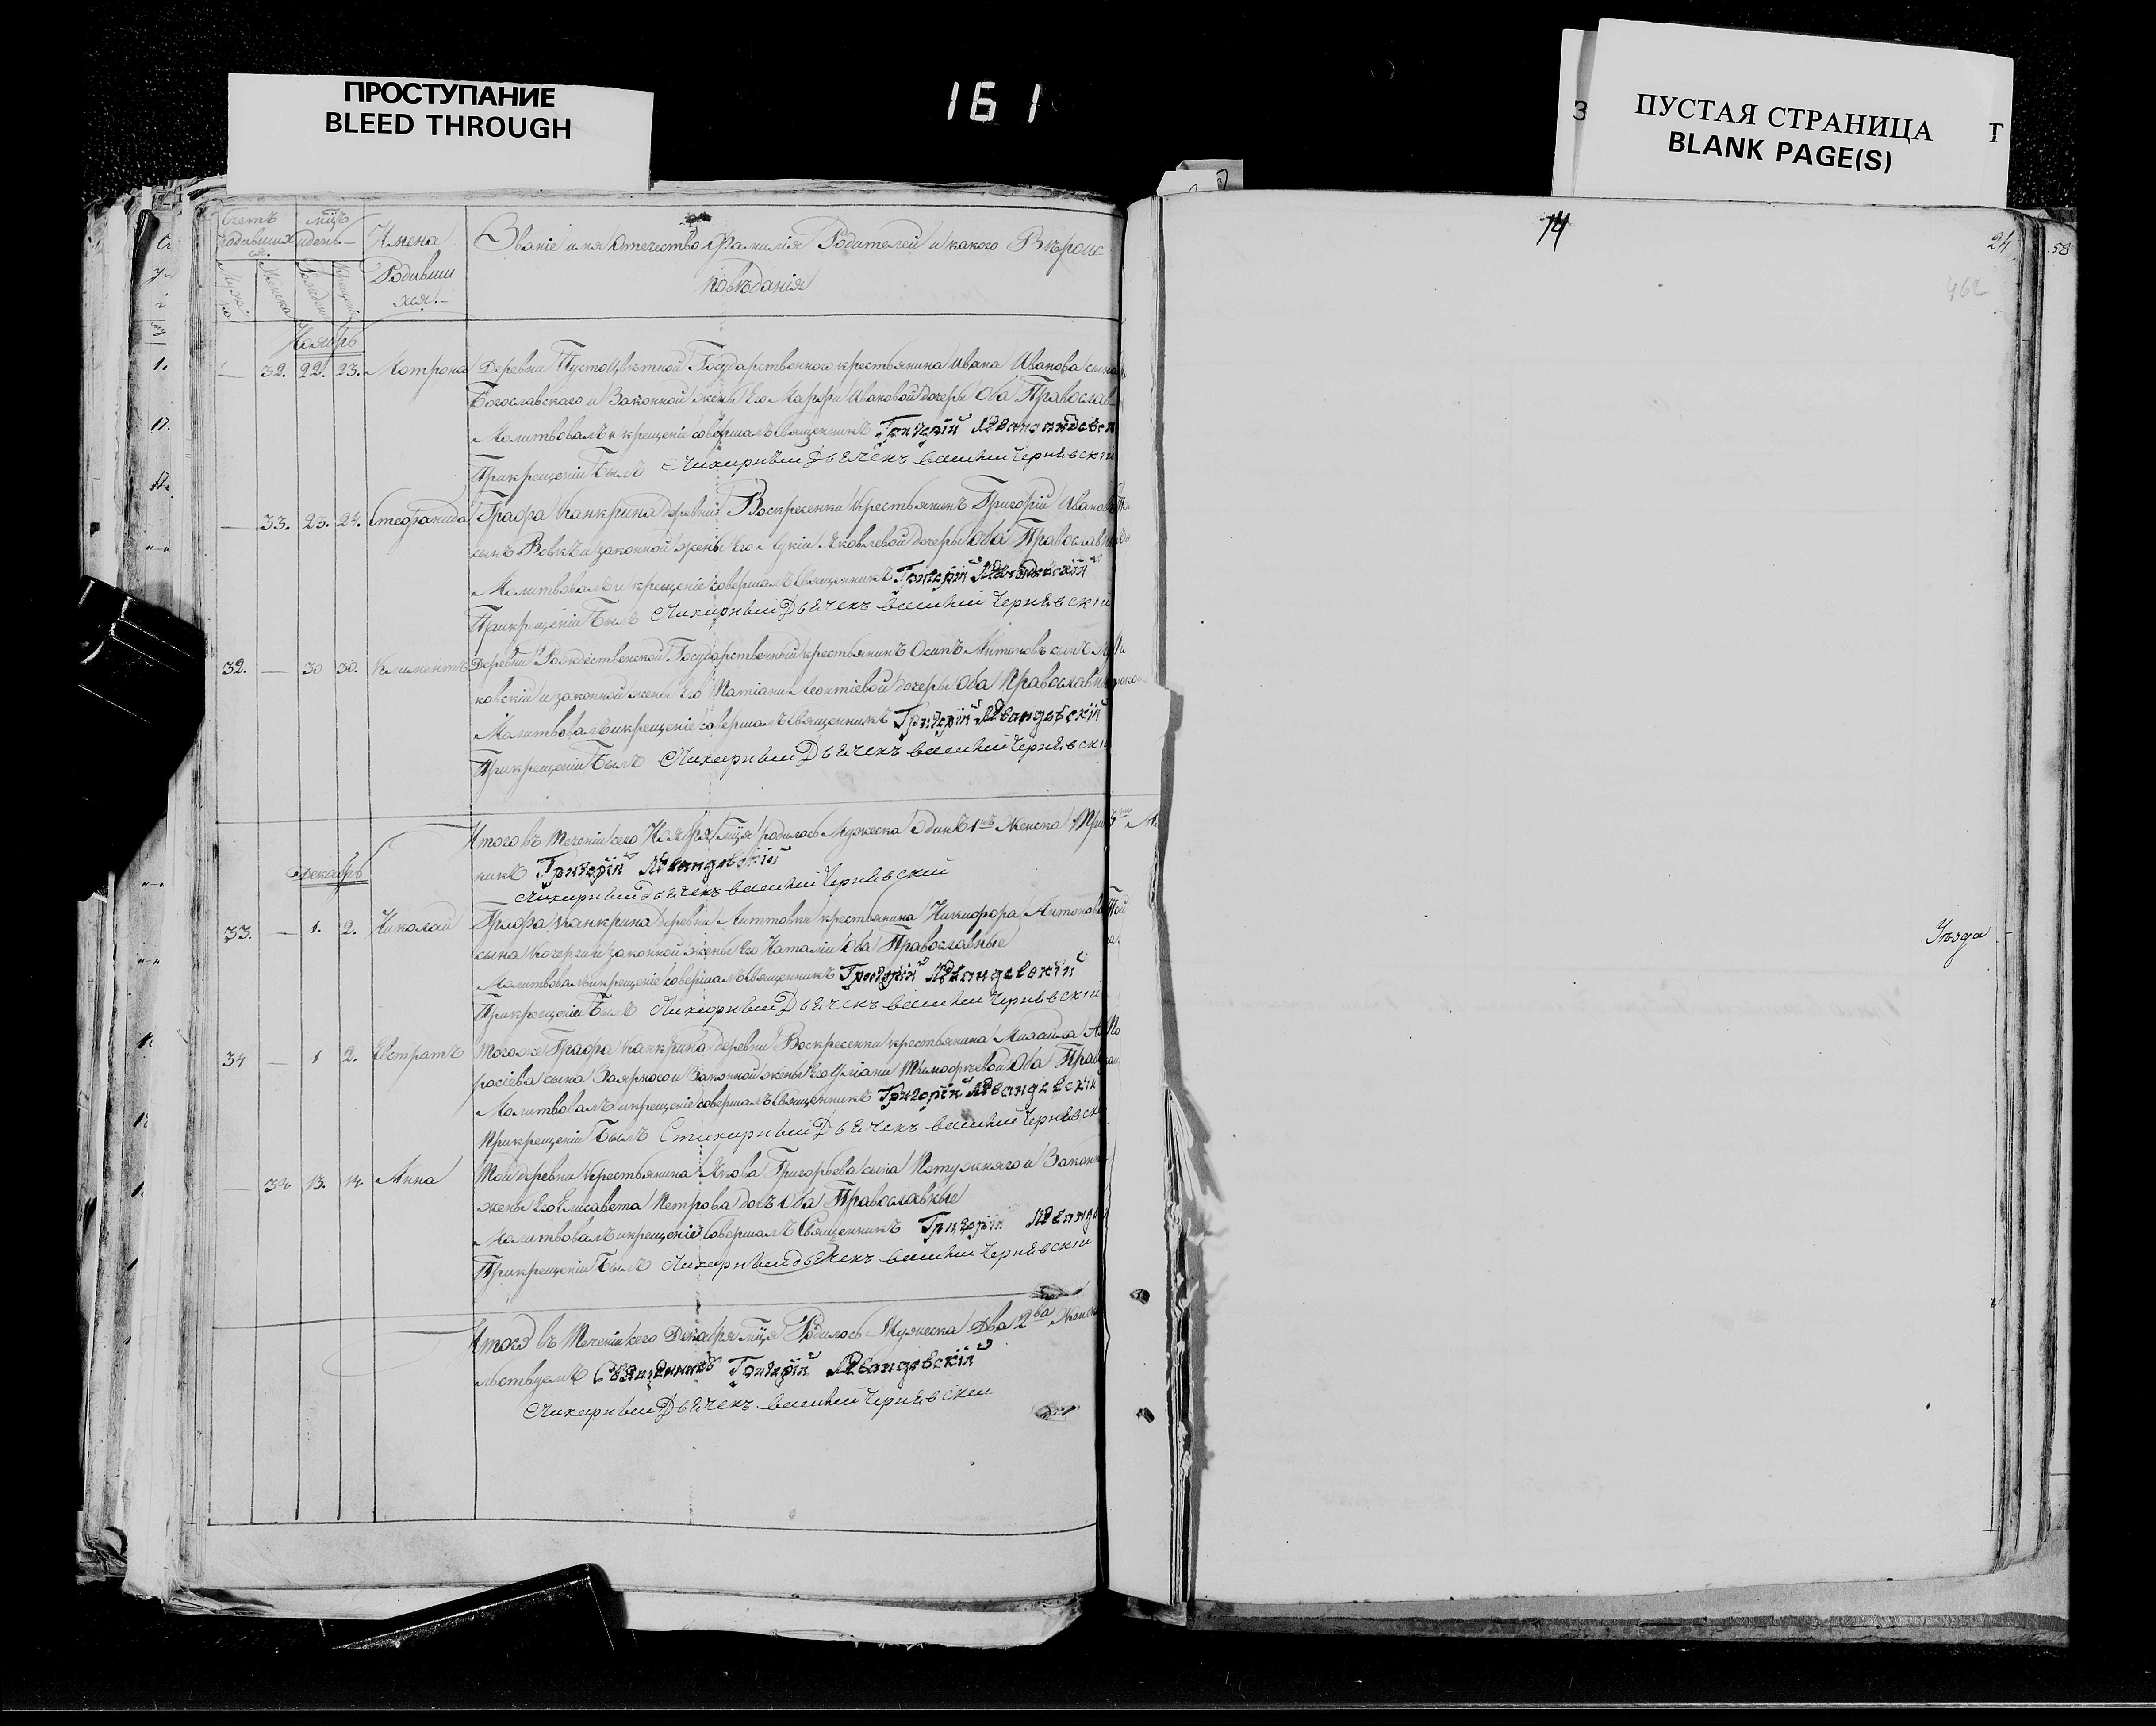 ПРОСТУПАНИЕ
BLEED THROUGH
161
ПУСТАЯ СТРАНИЦА
BLANK PAGE(S)
Счетъ родившихся
мцъ и день
Имена Родившихся.
Званіе имя отечество фамилія Родителей и какого Вѣроис
повѣданія
Ноябрь
32. 22. 23. Мотрона Деревни Пустоцвѣтной Государственного крестьянина Ивана Иванова сына
Богославского и Законной жены Его Марфы Ивановой дочеры оба Православ
Молитвовалъ и крещеніе совершалъ Священникъ Григорій Левандовскій
При крещеніи Былъ Стихарный Дьячекъ Василий Чернявский
33. 23. 24. Стефанида Графа Канкрина деревни Воскресенки крестьянинъ Григорій Ивановъ
сынъ Вовкъ и законной жены Его Лукіи Яковлевой дочеры оба Православн
Молитвовалъ и крещеніе совершалъ Священникъ Григорій Левандовскій
При крещеніи Былъ Стихарный Дьячекъ Василий Чернявский
32. 30 30. Климентъ Деревни Рождественской Государственный крестьянинъ Осипъ Антоновъ сынъ
ковскій и законной жены Его Татіаны Леонтіевой дочеры оба Православн
Молитвовалъ и крещеніе совершалъ Священникъ Григорій Левандовскій
При крещеніи Былъ Стихарный Дьячекъ Василий Чернявский
Итого въ Теченіи сего Ноября Мця родилось Мужеска одинъ 1нъ Женска Три
никъ Григорій Левандовскій
Стихарный дьячекъ Василий Чернявский
Декабрь
33. 1. 2. Николай Графа Канкрина деревни крестьянина Никифора Антонова
сына Кочерги и законной жены Его Наталіи оба Православные
Молитвовалъ и крещеніе совершалъ Священникъ Григорій Левандовскій
При крещеніи Былъ Стихарный Дьячекъ Василий Чернявский
34 1 2. Евстратъ Тогоже Графа Канкрина деревни Воскресенки крестьянина Михайла
росіева сына Заярного и Законной жены Его Уліани Тимофѣевой оба Прав
Молитвовалъ и крещеніе совершалъ Священникъ Григорій Левандовскій
При крещеніи Былъ Стихарный Дьячекъ Василий Чернявск
34 13. 14. Анна Той деревни крестьянина Якова Григорьева сына и Законн
жены Его Елисавета Петрова дочъ оба Православные
Молитвовалъ и крещеніе совершалъ Священникъ Григорій Леванд
При крещеніи Былъ Стихарный дьячекъ Василий Чернявский
Итого въ Теченіи сего Декабря Мця Родилось Мужеска Два 2ва Женск
льствуемъ Священникъ Григорій Левандовскій
Стихарный Дьячекъ Василий Чернявский
24
462
58
Уѣзда